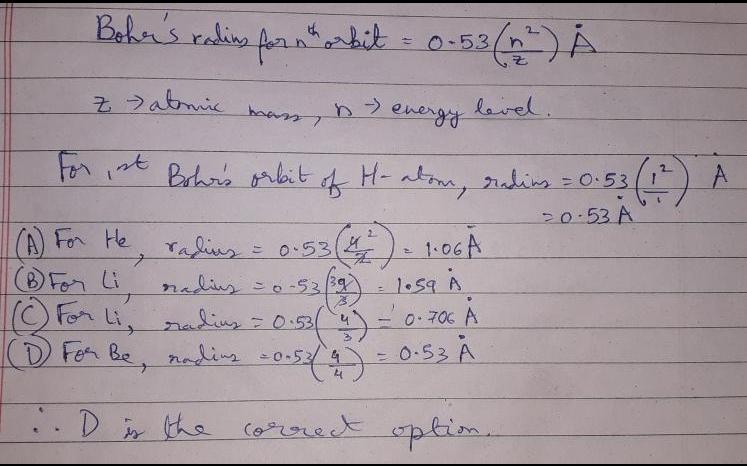 Bohr's radius for nth orbit = 0.53 (n²/z) Å
z → atomic mass, n → energy level.
For 1st Bohr's orbit of H-atom, radius = 0.53 (1²/1) Å
= 0.53 Å
(A) For He, radius = 0.53 (4²/2) = 1.06 Å
(B) For Li, radius = 0.53 (39/3) = 1.59 Å
(C) For Li, radius = 0.53 (4/3) = 0.706 Å
(D) For Be, radius = 0.53 (4/4) = 0.53 Å
∴ D is the correct option.